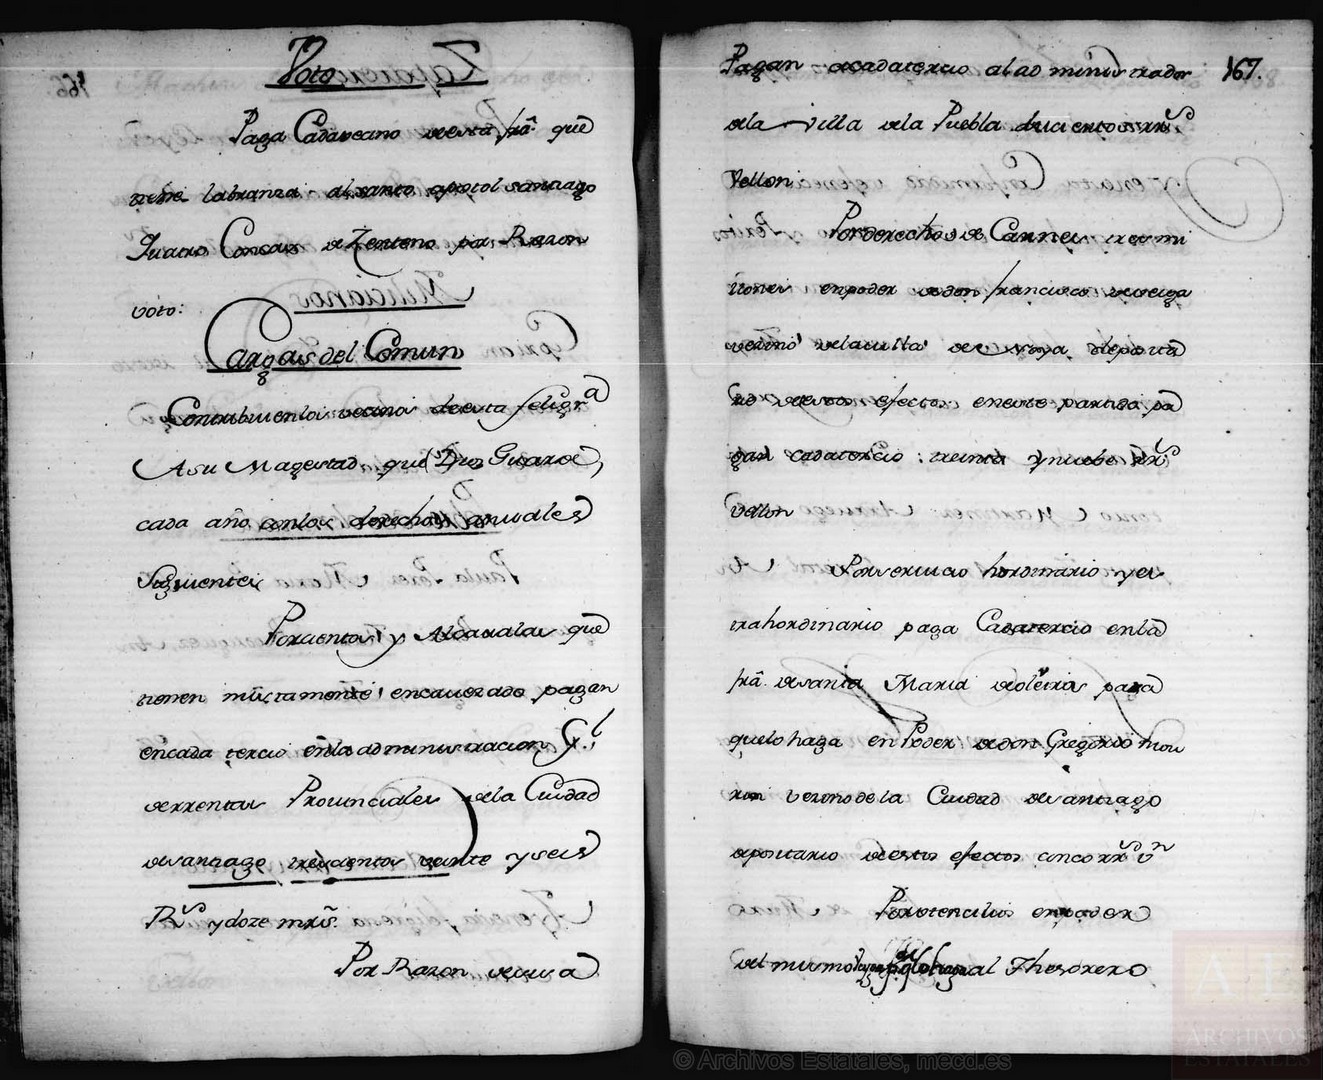 Voto
Paga Cadavecano de esta frã. quẽ
tiene labranza al santo apostol santiago
Quatro Concas de Zenteno por Razon
voto:
Cargas del Comun
Contribuien los vecinos de esta feligrª
A su Magestad que Dios Guarde,
cada año con los derechos anuales
Siguientes
Porcientos y Alcavalas quẽ
tienen mistamente encavezado pagan
en cada tercio en la administracion Gl.
de rrentas Provinciales de la Ciudad
de santiago trescientos veinte y seis
Rs y doze mrs.
Por Razon de sisa
Pagan a cada tercio al administrador 167.
de la villa de la Puebla ducientos rrs
Vellon
Por derechos de Carnes y ter mi
en poder de don francisco de veiga
vecino de la villa de Noya deposita
rio de estos efectos en este partido pa
gan cada tercio: treinta y nuebe rrs
vellon
Por servicio hordinario y es
trahordinario paga Cada tercio en lã
frã. de santa Maria de oleiros pagã
que lo haga en Poder de don Gregorio mou
rin vecino de la Ciudad de santiago
depositario de estos efectos cinco rrs vn
Por utencilios en poder
del mismo al Thesorero
© Archivos Estatales, mecd.es
AL
ARCHIVOS
ESTATALES